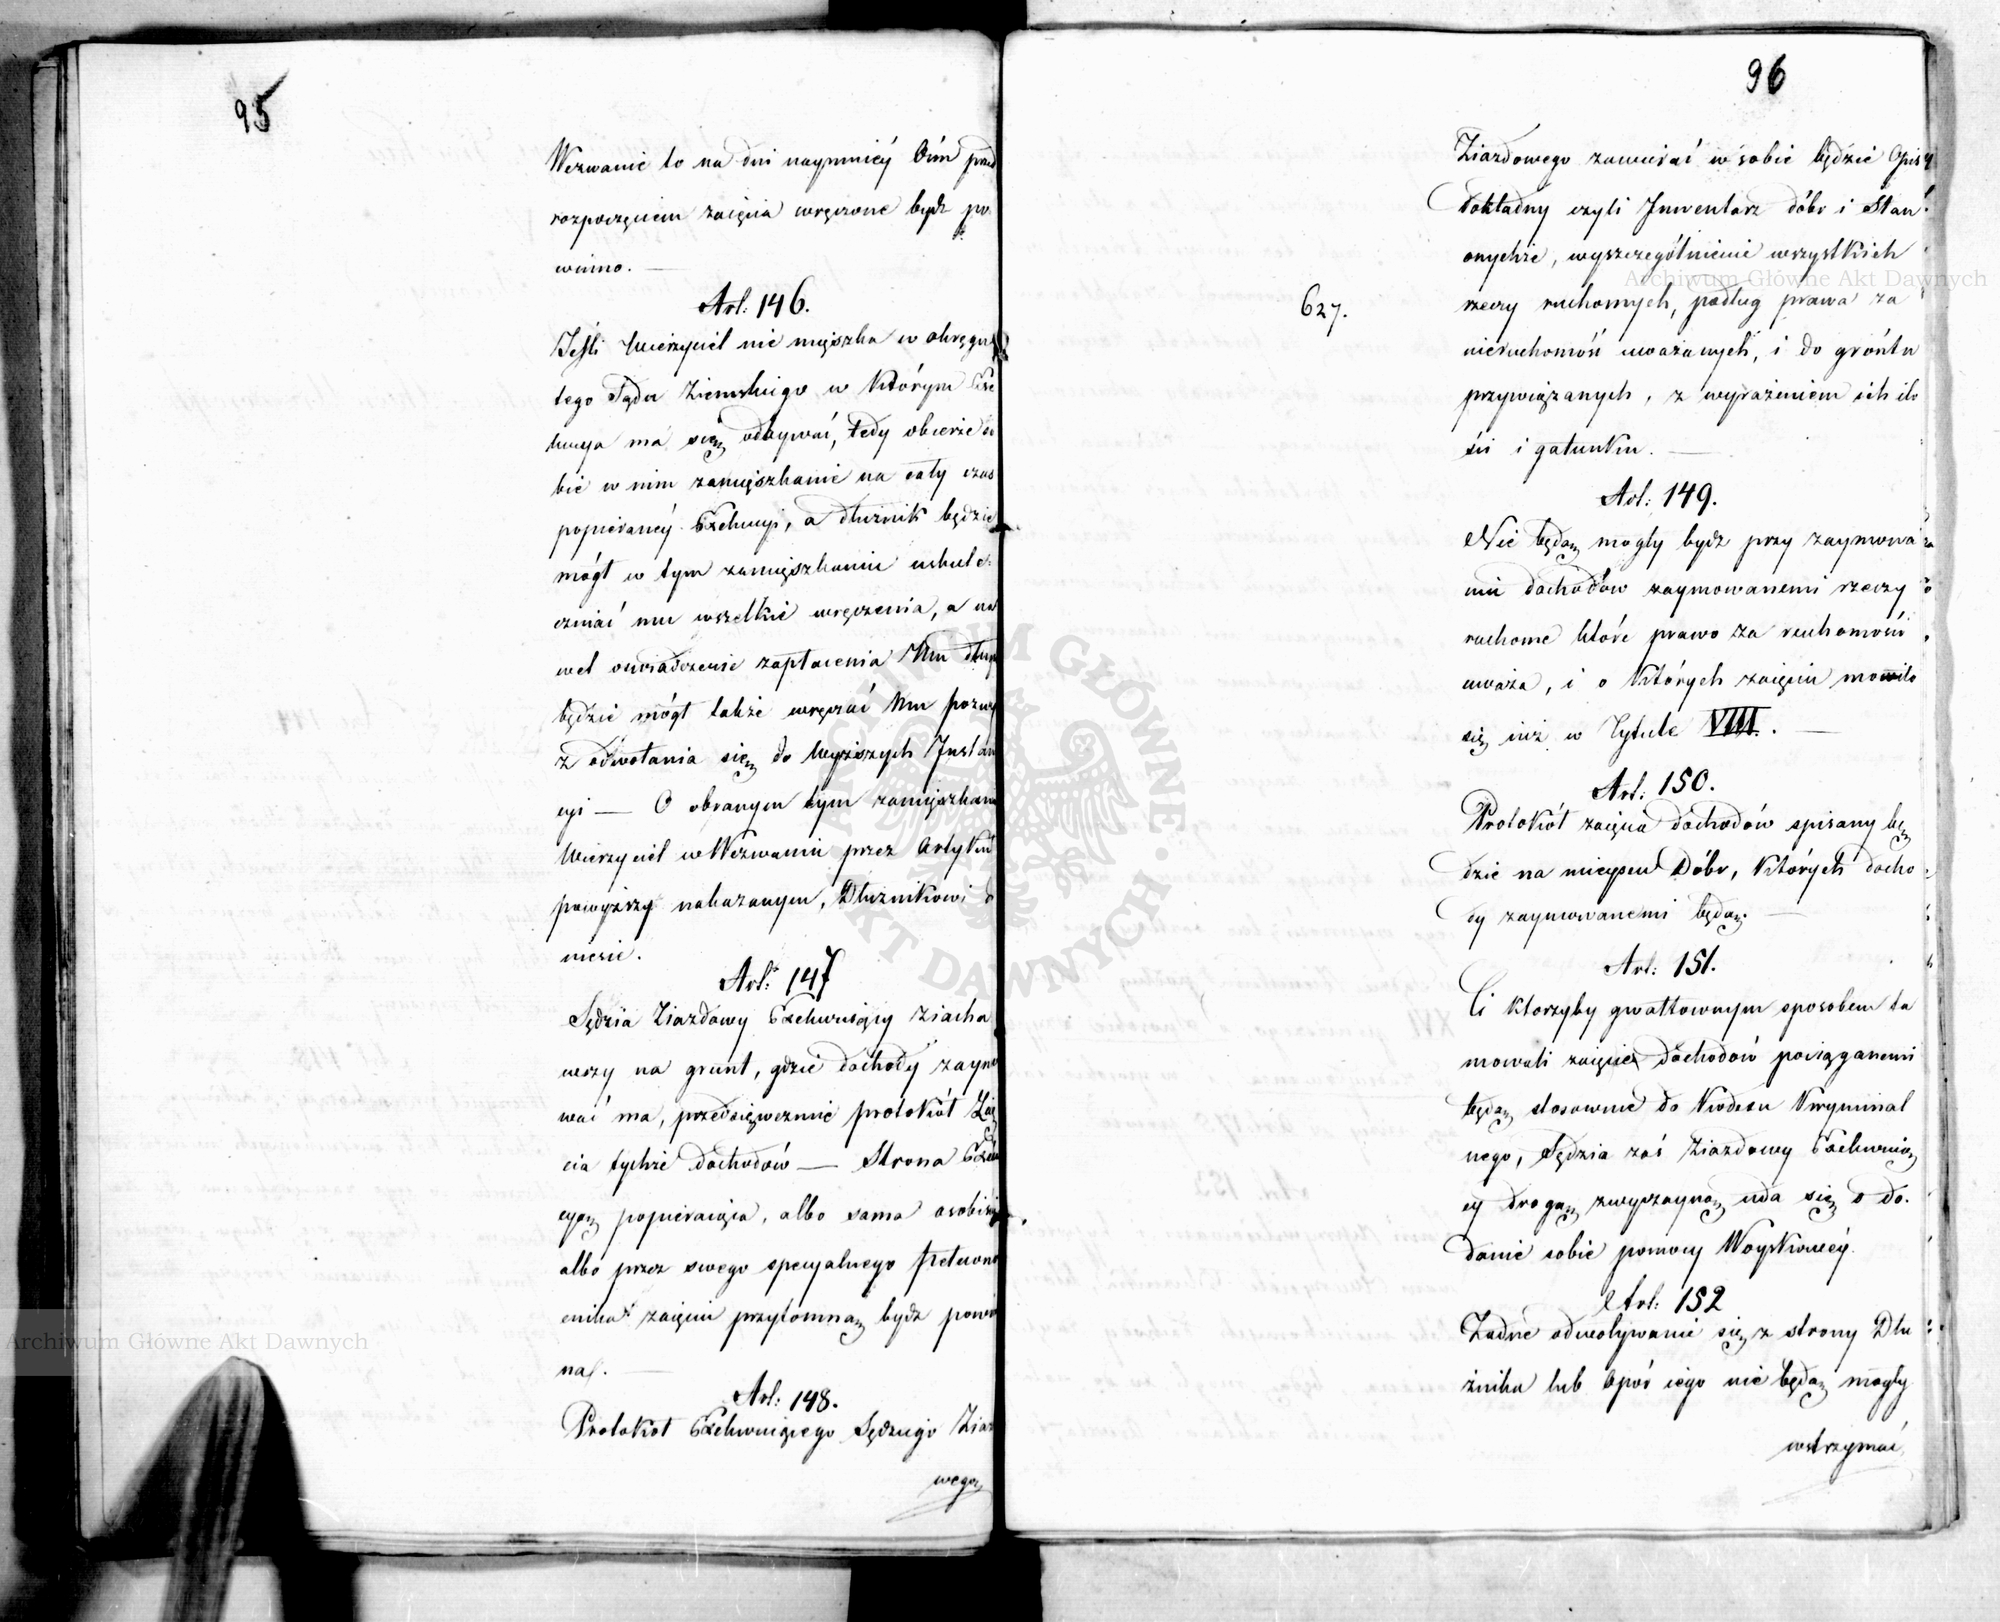 95
Wezwanie to na dni naymniéy Ośm przed
rozpoczęciem zaięcia wręczone bydź po
winno. —
Art: 146.
Jeśli Wierzyciel nie miészka w okręgu
tego Sądu Ziemskiego w Którym Exe
kucya ma się odbywać, tedy obierze so
bie w nim zamięszkanie na cały czas
popieranéy Exekucyi, a dłużnik będzie
mógł w tym zamięszkaniu uskute
czniać mu wszelkie wręczenia, a na
wet oswiadczenie zapłacenia Mu długu
będzie mógł także wręczać Mu pozwy
z odwołania się do Wyższych Instan
cyi — O obranym tym zamięszkaniu
Wierzyciel w Wezwaniu przez Artykuł
powyższy nakazanym, Dłużnikowi do
niesie.
Art: 147
Sędzia Ziazdowy Exekwuiący ziecha
wszy na grunt, gdzie dochody zaymo
wać ma, przedsięwezmie protokół Zaię
cia tychże dochodów — Strona Exeku
cyą popieraiąca, albo sama osobiście
albo przez swego specyalnego pełnomo
cnika zaięciu przytomną bydź powin
na. —
Art: 148.
Protokoł Exekwuiącego Sędziego Ziaz
wego
96
Ziazdowego zawierać w sobie będzie Opis
dokładny czyli Inwentarz dóbr i Stan
onychże, wyszczególnienie wszystkich
627.
rzeczy ruchomych, podług prawa za
nieruchomość uważanych, i do gróntu
przywiązanych, z wyrażeniem ich ilo
ści i gatunku. —
Art: 149.
Nie będą mogły bydź przy zaymowa
niu dochodów zaymowanemi rzeczy
ruchome które prawo za ruchomość
uważa, i o Których zaięciu mowiło
się iuż w Tytule VIII. —
Art: 150.
Protokół zaięcia dochodów spisany bę
dzie na mieyscu Dóbr, Których docho
dy zaymowanemi będą. —
Art: 151.
Ci ktorzyby gwałtownym sposobem ta
mowali zaięcie dochodów pociąganemi
będą stosownie do Kodexu Kryminal
nego, Sędzia zaś Ziazdowy Exekwuią
cy drogą zwyczayną uda się o do
danie sobie pomocy Woyskowéy.
Art: 152
Żadne odwoływanie się z strony Dłu
żnika lub Opór iego nie będą mogły
wstrzymać
Archiwum Główne Akt Dawnych
Archiwum Główne Akt Dawnych
ARCHIWUM GŁÓWNE AKT DAWNYCH